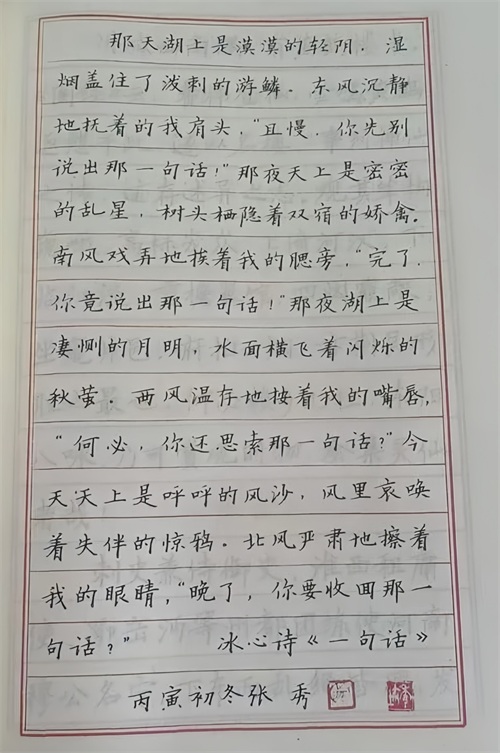 那天湖上是漠漠的轻阴．湿
烟盖住了泼刺的游鳞．东风沉静
地抚着的我肩头，“且慢．你先别
说出那一句话！”那夜天上是密密
的乱星，树头栖隐着双宿的娇禽．
南风戏弄地挨着我的腮旁，“完了．
你竟说出那一句话！”那夜湖上是
凄恻的月明，水面横飞着闪烁的
秋萤．西风温存地按着我的嘴唇，
“何必，你还思索那一句话？”今
天天上是呼呼的风沙，风里哀唤
着失伴的惊鸦．北风严肃地擦着
我的眼睛，“晚了，你要收回那一
句话？” 冰心诗《一句话》
丙寅初冬张 秀